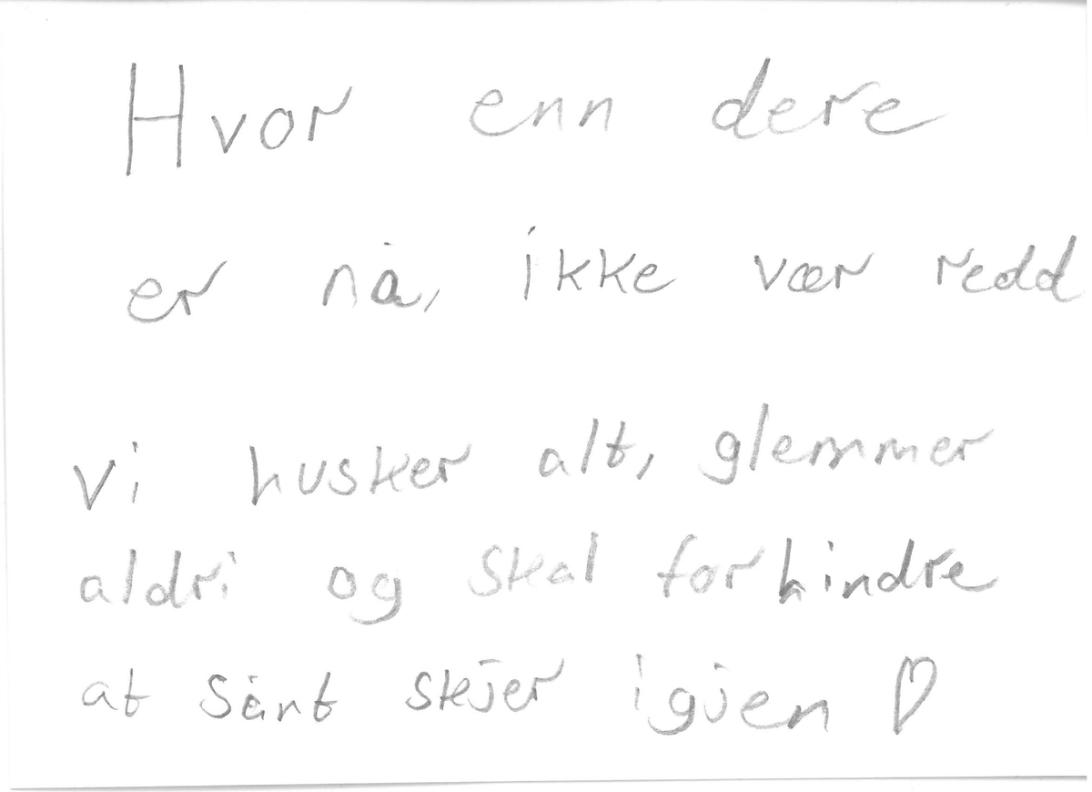 Hvor enn dere
er nå, ikke vær redd
Vi husker alt, glemmer
aldri og skal forhindre
at sånt skjer igjen ♡